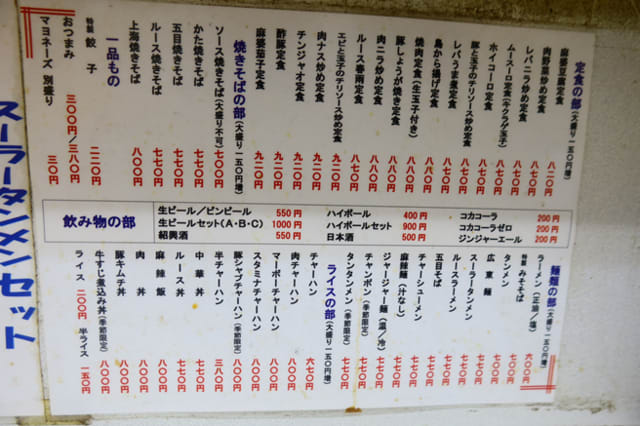 定食の部(大盛り一五〇円増)
麻婆豆腐定食 八二〇円
肉野菜炒め定食 七七〇円
レバニラ炒め定食 八七〇円
ムースーロ定食(キクラゲ玉子)
ホイコーロ定食 八八〇円
豚と玉子のチリソース炒め定食 八八〇円
レバうま煮定食 八八〇円
鳥から揚げ定食 八八〇円
焼肉定食(生玉子付き) 八八〇円
豚しょうが焼き定食 八八〇円
肉ニラ炒め定食 八八〇円
ルース春雨定食 八七〇円
エビと玉子のチリソース炒め定食 九二〇円
肉ナス炒め定食 九二〇円
チンジャオ定食 九二〇円
酢豚定食 九二〇円
麻婆茄子定食 九二〇円
焼きそばの部(大盛り一五〇円増)
ソース焼きそば(大盛り不可) 七〇〇円
かた焼きそば 七七〇円
五目焼きそば 七七〇円
ルース焼きそば 七七〇円
上海焼きそば 八〇〇円
一品もの
特製 餃子 二二〇円
おつまみ 三〇〇円/三八〇円
マヨネーズ 別盛り 三〇円
飲み物の部
生ビール/ビンビール 550円
生ビールセット(A・B・C) 1000円
紹興酒 550円
ハイボール 400円
ハイボールセット 900円
日本酒 500円
コカコーラ 200円
コカコーラゼロ 200円
ジンジャーエール 200円
麺類の部(大盛り一五〇円増)
ラーメン(正油/塩) 六〇〇円
特製 みそそば 七〇〇円
タンメン 七〇〇円
広東麺 七七〇円
スーラータンメン 七七〇円
ルースラーメン 七七〇円
五目そば 七七〇円
チャーシューメン 七七〇円
麻辣麺(汁なし) 八〇〇円
ジャージャー麺(温/冷) 七七〇円
チャンポン(季節限定) 八〇〇円
タンタンメン(季節限定) 七七〇円
ライスの部(大盛り一五〇円増)
チャーハン 六七〇円
肉チャーハン 八〇〇円
マーボーチャーハン 八〇〇円
スタミナチャーハン 八〇〇円
豚シャブチャーハン(季節限定) 八〇〇円
半チャーハン 三八〇円
中華丼 七七〇円
ルース丼 七七〇円
麻辣飯 八〇〇円
肉丼 八〇〇円
豚キムチ丼 八〇〇円
牛すじ煮込み丼(季節限定) 八〇〇円
ライス 二〇〇円 半ライス 一五〇円
スーラータンメンセット